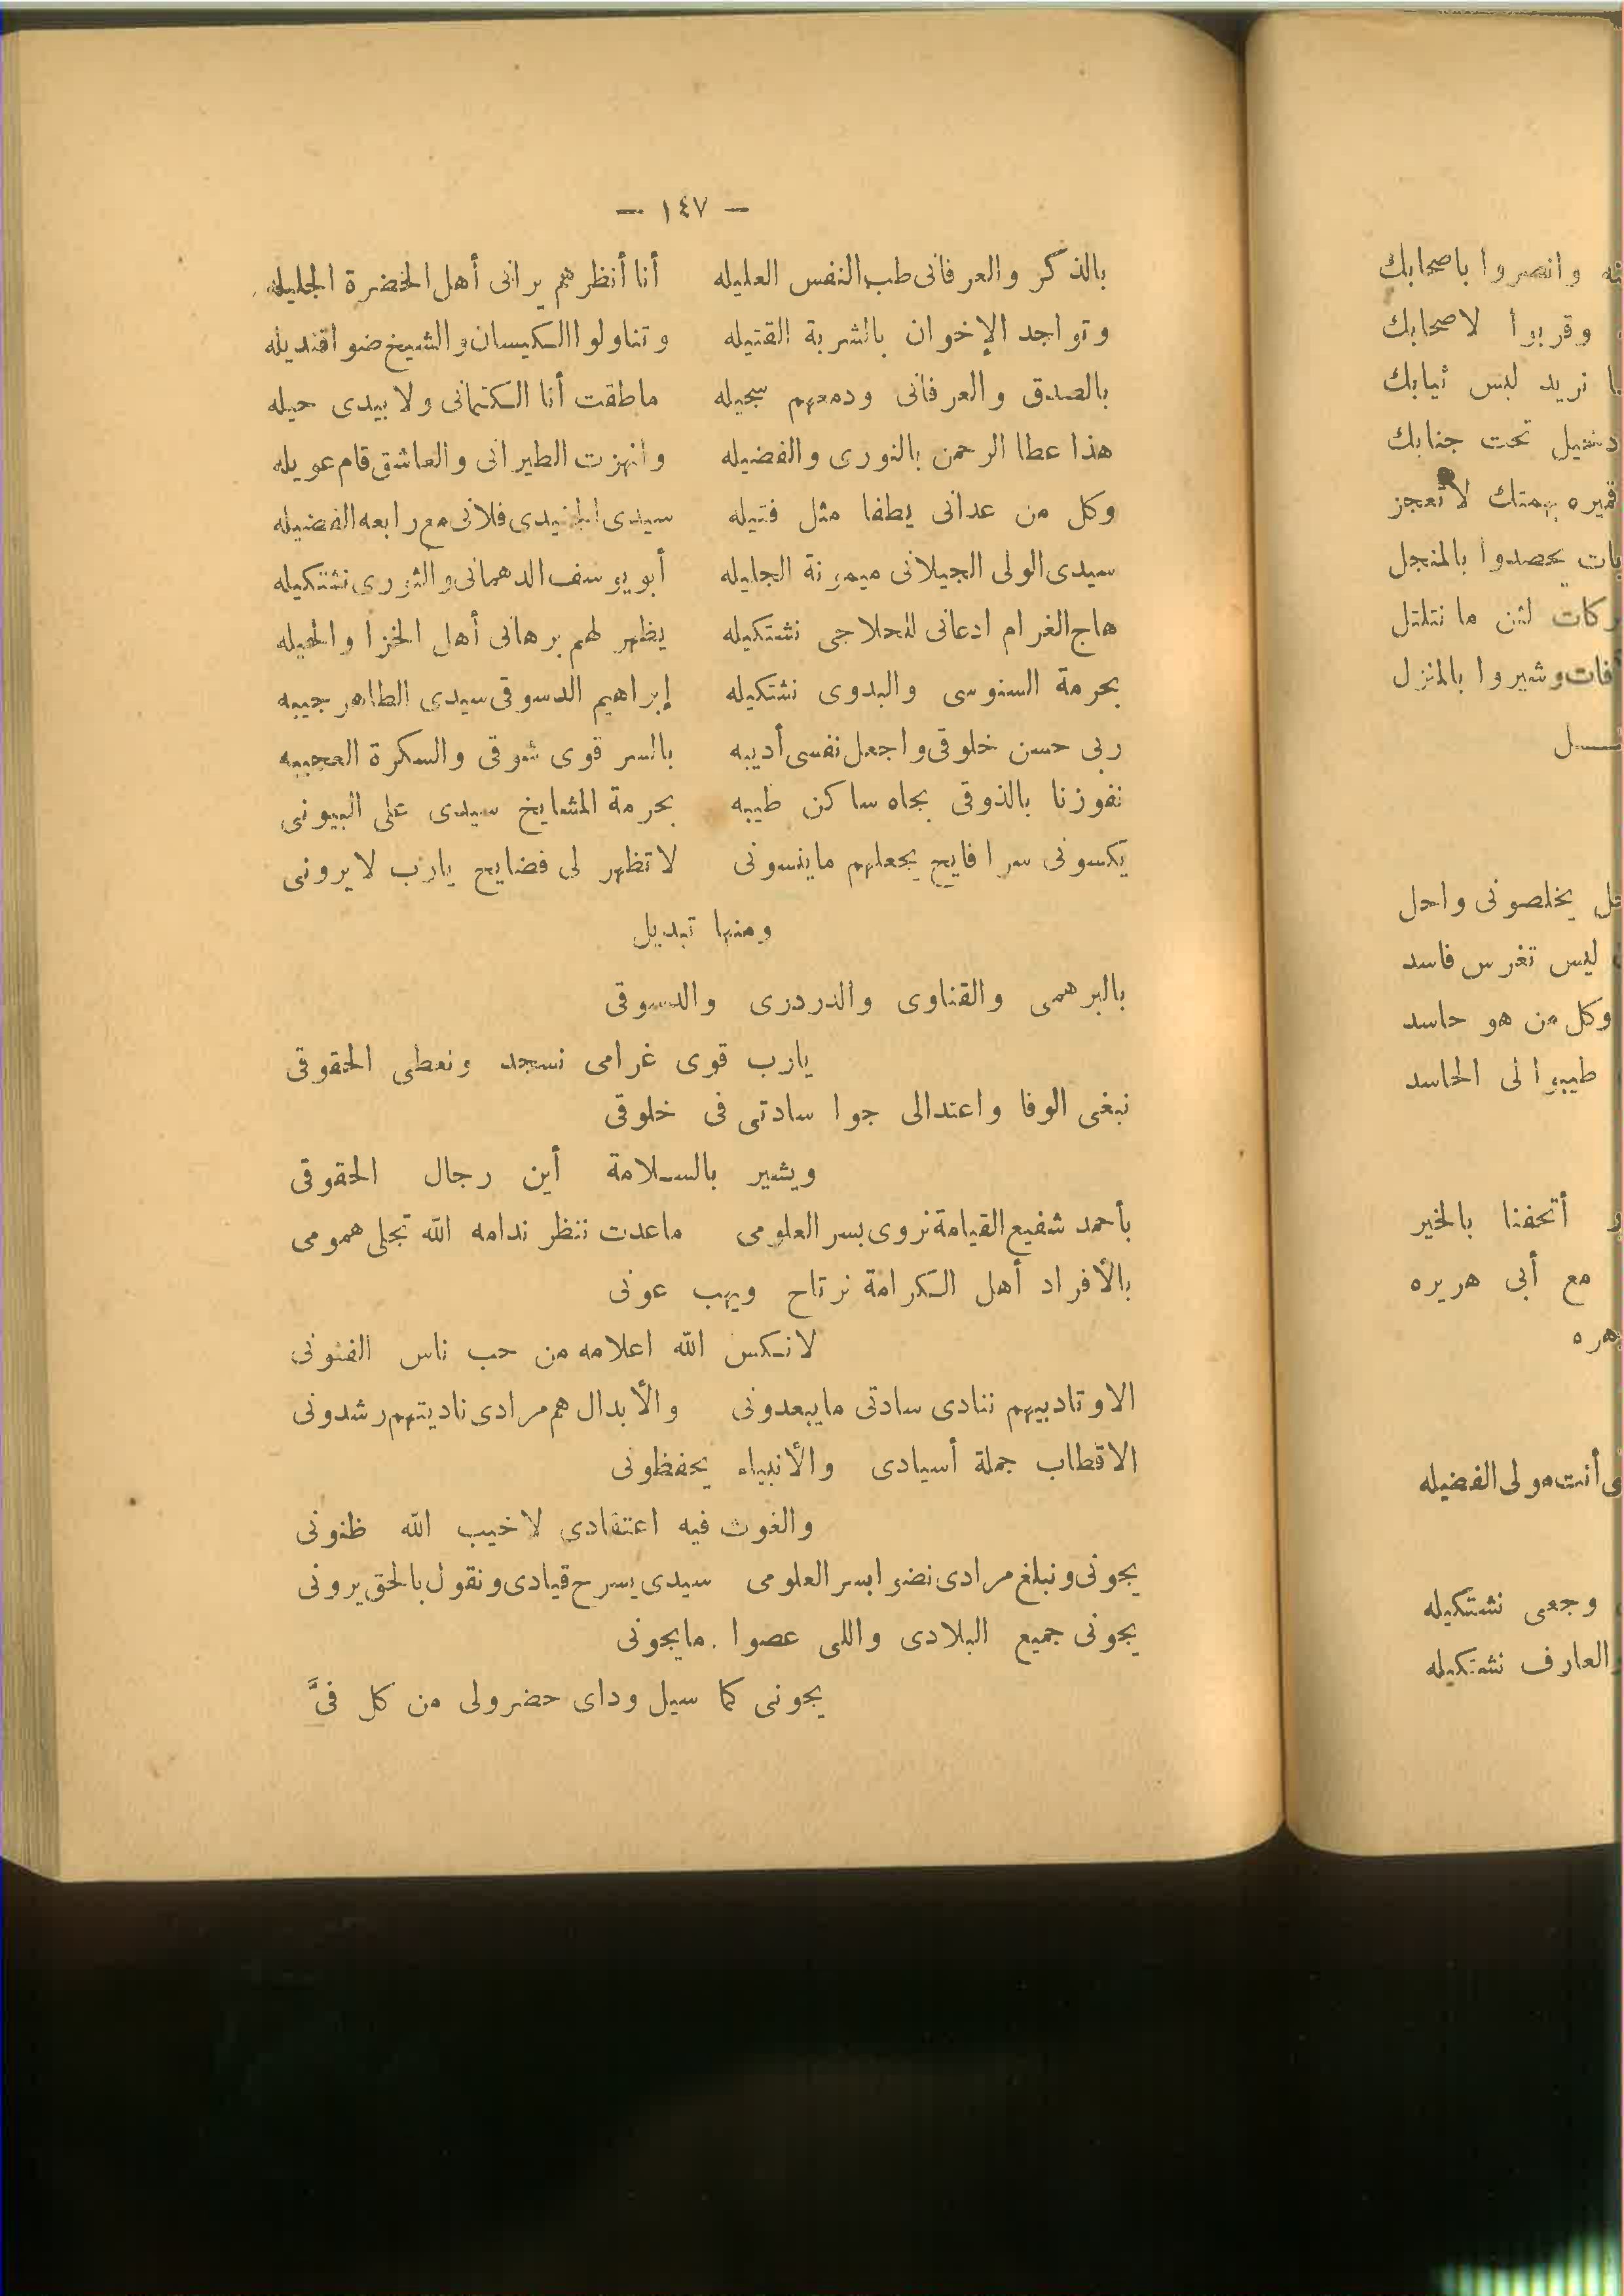 — ١٤٧ —
بالذكر والعرفانى طب النفس العليله أنا أنظرهم برانى أهل الخضرة الجليله
وتواجد الإخوان بالشربة القتيله وتناولوا الكيسان والشيخ ضوا قنديله
بالصدق والعرفانى ودمعهم سجيله ماطقت أنا الكتمانى ولا بيدى حيله
هذا عطا الرحمن بالنورى والفضيله وانهزت الطيرانى والعاشق قام عويله
وكل من عدانى يطفا مثل فتيله سيدى الجنيدى فلانى مع رابعه الفضيله
سيدى الولى الجيلانى ميمونة الجليله أبو يوسف الدهمانى والثورى نشتكيله
هاج الغرام ادعانى للحلاجى نشتكيله يظهر لهم برهانى أهل الخزا والحيله
بحرمة السنوسى والبدوى نشتكيله إبراهيم الدسوقى سيدى الطاهر جيبه
ربى حسن خلوقى واجعل نفسى أديبه بالسر قوى شوقى والسكرة العجيبه
نفوزنا بالذوقى بجاه ساكن طيبه بحرمة المشايخ سيدى على البيونى
يكسونى سرا فايح يجعلهم ماينسونى لا تظهر لى فضايح يارب لا يرونى
ومنها تبديل
بالبرهمى والقناوى والدردرى والدسوقى
يارب قوى غرامى نسجد ونعطى الحقوقى
نبغى الوفا واعتدالى جوا سادتى فى خلوقى
ويشير بالسلامة أين رجال الحقوقى
بأحمد شفيع القيامة نروى بسر العلومى ماعدت ننظر ندامه الله تجلى همومى
بالأفراد أهل الكرامة نرتاح ويهب عونى
لانكس الله اعلامه من حب ناس الفنونى
الاوتاد بيهم ننادى سادتى مايبعدونى والأبدال هم مرادى ناديتهم رشدونى
الاقطاب جملة أسيادى والأنبياء يحفظونى
والغوث فيه اعتقادى لا خيب الله ظنونى
يجونى ونبلغ مرادى نضوا بسر العلومى سيدى يسرح قيادى ونقول بالحق يرونى
يجونى جميع البلادى واللى عصوا . مايجونى
يجونى كما سيل وداى حضرولى من كل فىَّ
وانصروا باصحابك
وقربوا لاصحابك
نريد لبس ثيابك
دشيل تحت جنابك
بهمتك لا تعجز
يحصدوا بالمنجل
لئن ما نتلتل
وشيروا بالمنزل
يخلصونى واحل
ليس تغرس فاسد
وكل من هو حاسد
طيبوا لى الحاسد
أتحفنا بالخير
مع أبى هريره
أنت مولى الفضيله
وجعى نشتكيله
العارف نشتكيله